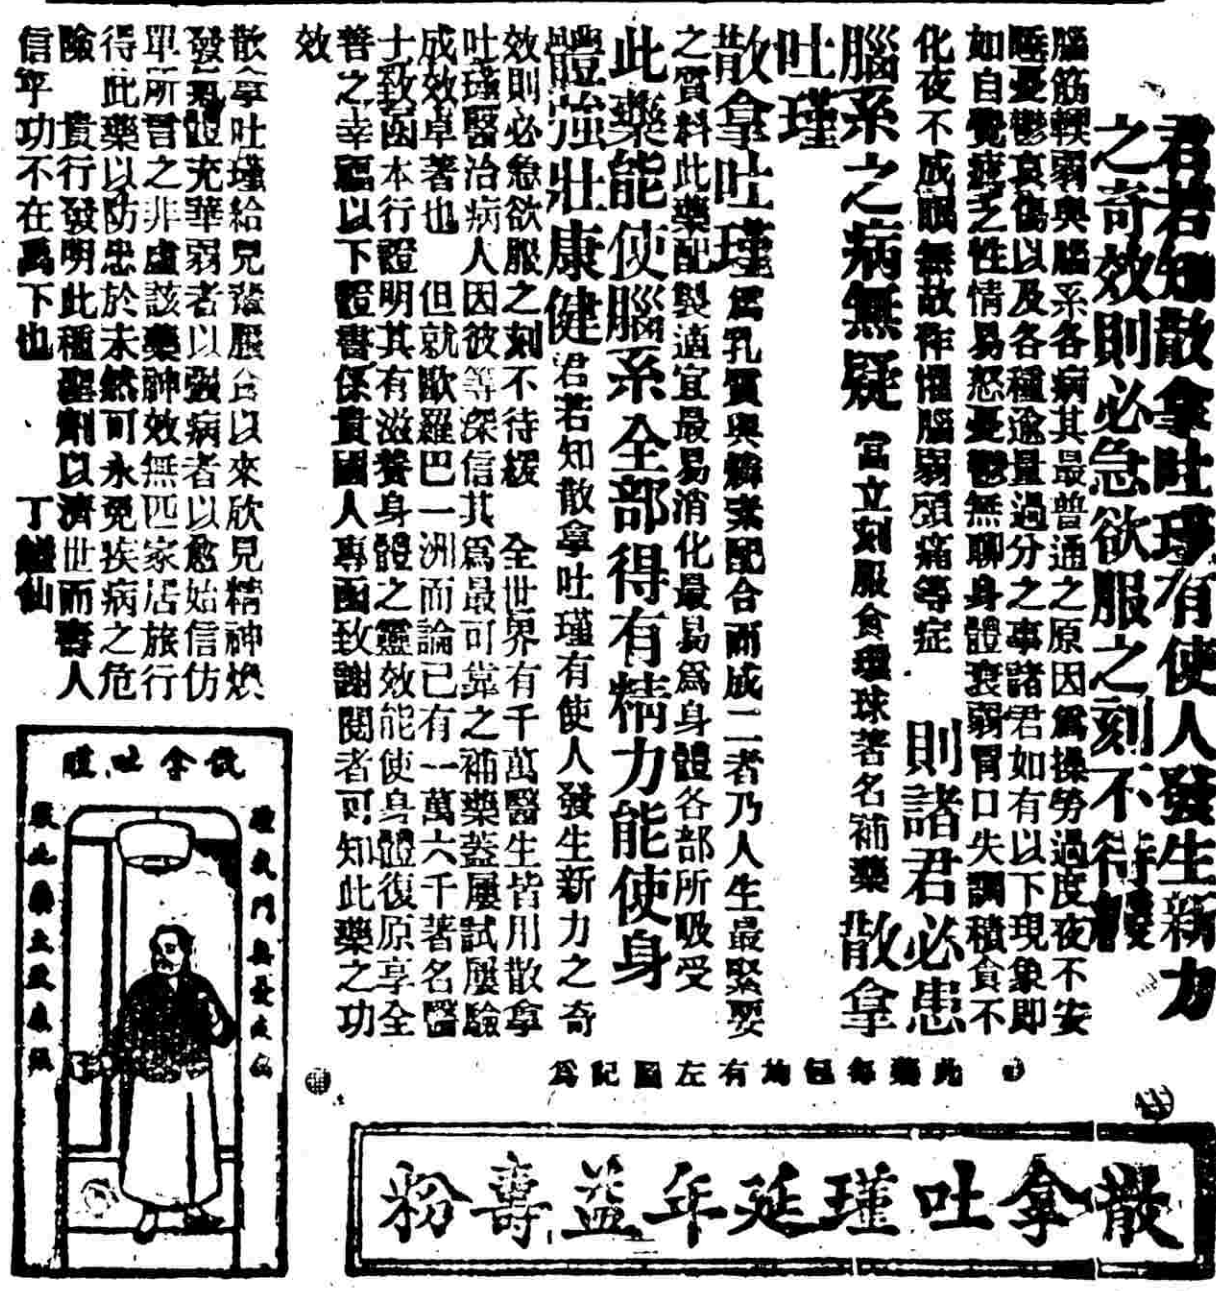 君若知散拿吐瑾有使人發生新力
之奇效則必急欲服之刻不待緩
腦筋軟弱與腦系各病其最普通之原因爲操勞過度夜不安
睡憂鬱哀傷以及各種逾量過分之事諸君如有以下現象即
如自覺疲乏性情易怒憂鬱無聊身體衰弱胃口失調積食不
化夜不成眠無故作懼腦弱頭痛等症 則諸君必患
腦系之病無疑 當立刻服食環球著名補藥 散拿
吐瑾
散拿吐瑾爲乳質與燐素配合而成二者乃人生最緊要
之質料此藥配製適宜最易消化最易爲身體各部所吸受
此藥能使腦系全部得有精力能使身
體強壯康健君若知散拿吐瑾有使人發生新力之奇
效則必急欲服之刻不待緩 全世界有千萬醫生皆用散拿
吐瑾醫治病人因彼等深信其爲最可靠之補藥蓋屢試屢驗
成效卓著也 但就歐羅巴一洲而論已有一萬六千著名醫
士致函本行證明其有滋養身體之靈效能使身體復原享全
善之幸福以下證書係貴國人專函致謝閱者可知此藥之功
效
散拿吐瑾給兒輩服食以來欣見精神煥
發氣體充華弱者以強病者以愈始信仿
單所言之非虛該藥神效無匹家居旅行
得此藥以防患於未然可永免疾病之危
險 貴行發明此種聖劑以濟世而壽人
信乎功不在禹下也 丁仙
此藥每包均有左圖記爲
散拿吐瑾延年益壽粉
散拿吐瑾
體或門無憂疾病
服此藥立致康強